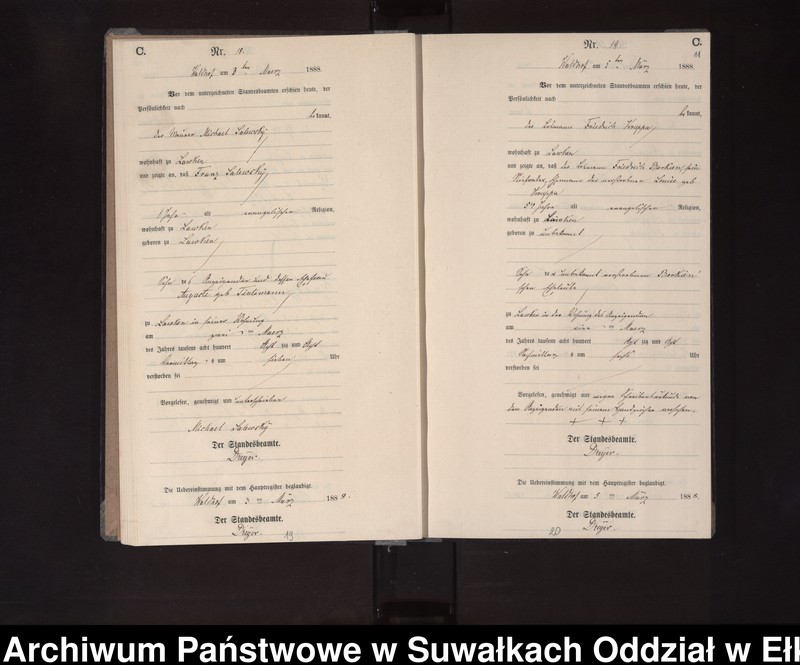 C.
Nr. 18.
Waldhof am 3 ten Maerz 1888.
Vor dem unterzeichneten Standesbeamten erschien heute, der
Persönlichkeit nach
bekannt,
der Maurer Michael Salewsky
wohnhaft zu Lawken
und zeigte an, daß Franz Salewsky,
1 Jahr alt evangelischer Religion,
wohnhaft zu Lawken
geboren zu Lawken
Sohn des Anzeigenden und dessen Ehefrau
Auguste geb
zu Lawken in seiner Wohnung
am zwei ten Maerz
des Jahres tausend acht hundert Acht zig und Acht
Vormittags um sieben Uhr
verstorben sei
Vorgelesen, genehmigt und unterschrieben
Michael Salewsky
Der Standesbeamte.
Dreyer.
Die Uebereinstimmung mit dem Hauptregister beglaubigt.
Waldhof am 3 ten März 1888.
Der Standesbeamte.
Dreyer.
19
C.
Nr. 19.
Waldhof am 3 ten März 1888.
Vor dem unterzeichneten Standesbeamten erschien heute, der
Persönlichkeit nach
bekannt,
der Losmann Friedrich Kruppa
wohnhaft zu Lawken
und zeigte an, daß der Losmann Friedrich sein
Ehemann der verstorbenen Louise geb
Kruppa
Jahre alt evangelischer Religion,
wohnhaft zu Lawken
geboren zu unbekannt
Sohn der unbekannt verstorbenen
schen Eheleute
zu Lawken in der Wohnung des Anzeigenden
am eins ten Maerz
des Jahres tausend acht hundert Acht zig und Acht
Nachmittags um sechs Uhr
verstorben sei
Vorgelesen, genehmigt und wegen Schreibensunkunde von
dem Anzeigenden mit seinem Handzeichen versehen.
+ + +
Der Standesbeamte.
Dreyer.
Die Uebereinstimmung mit dem Hauptregister beglaubigt.
Waldhof am 3 ten März 1888.
Der Standesbeamte.
Dreyer.
20
Archiwum Państwowe w Suwałkach Oddział w Ełk